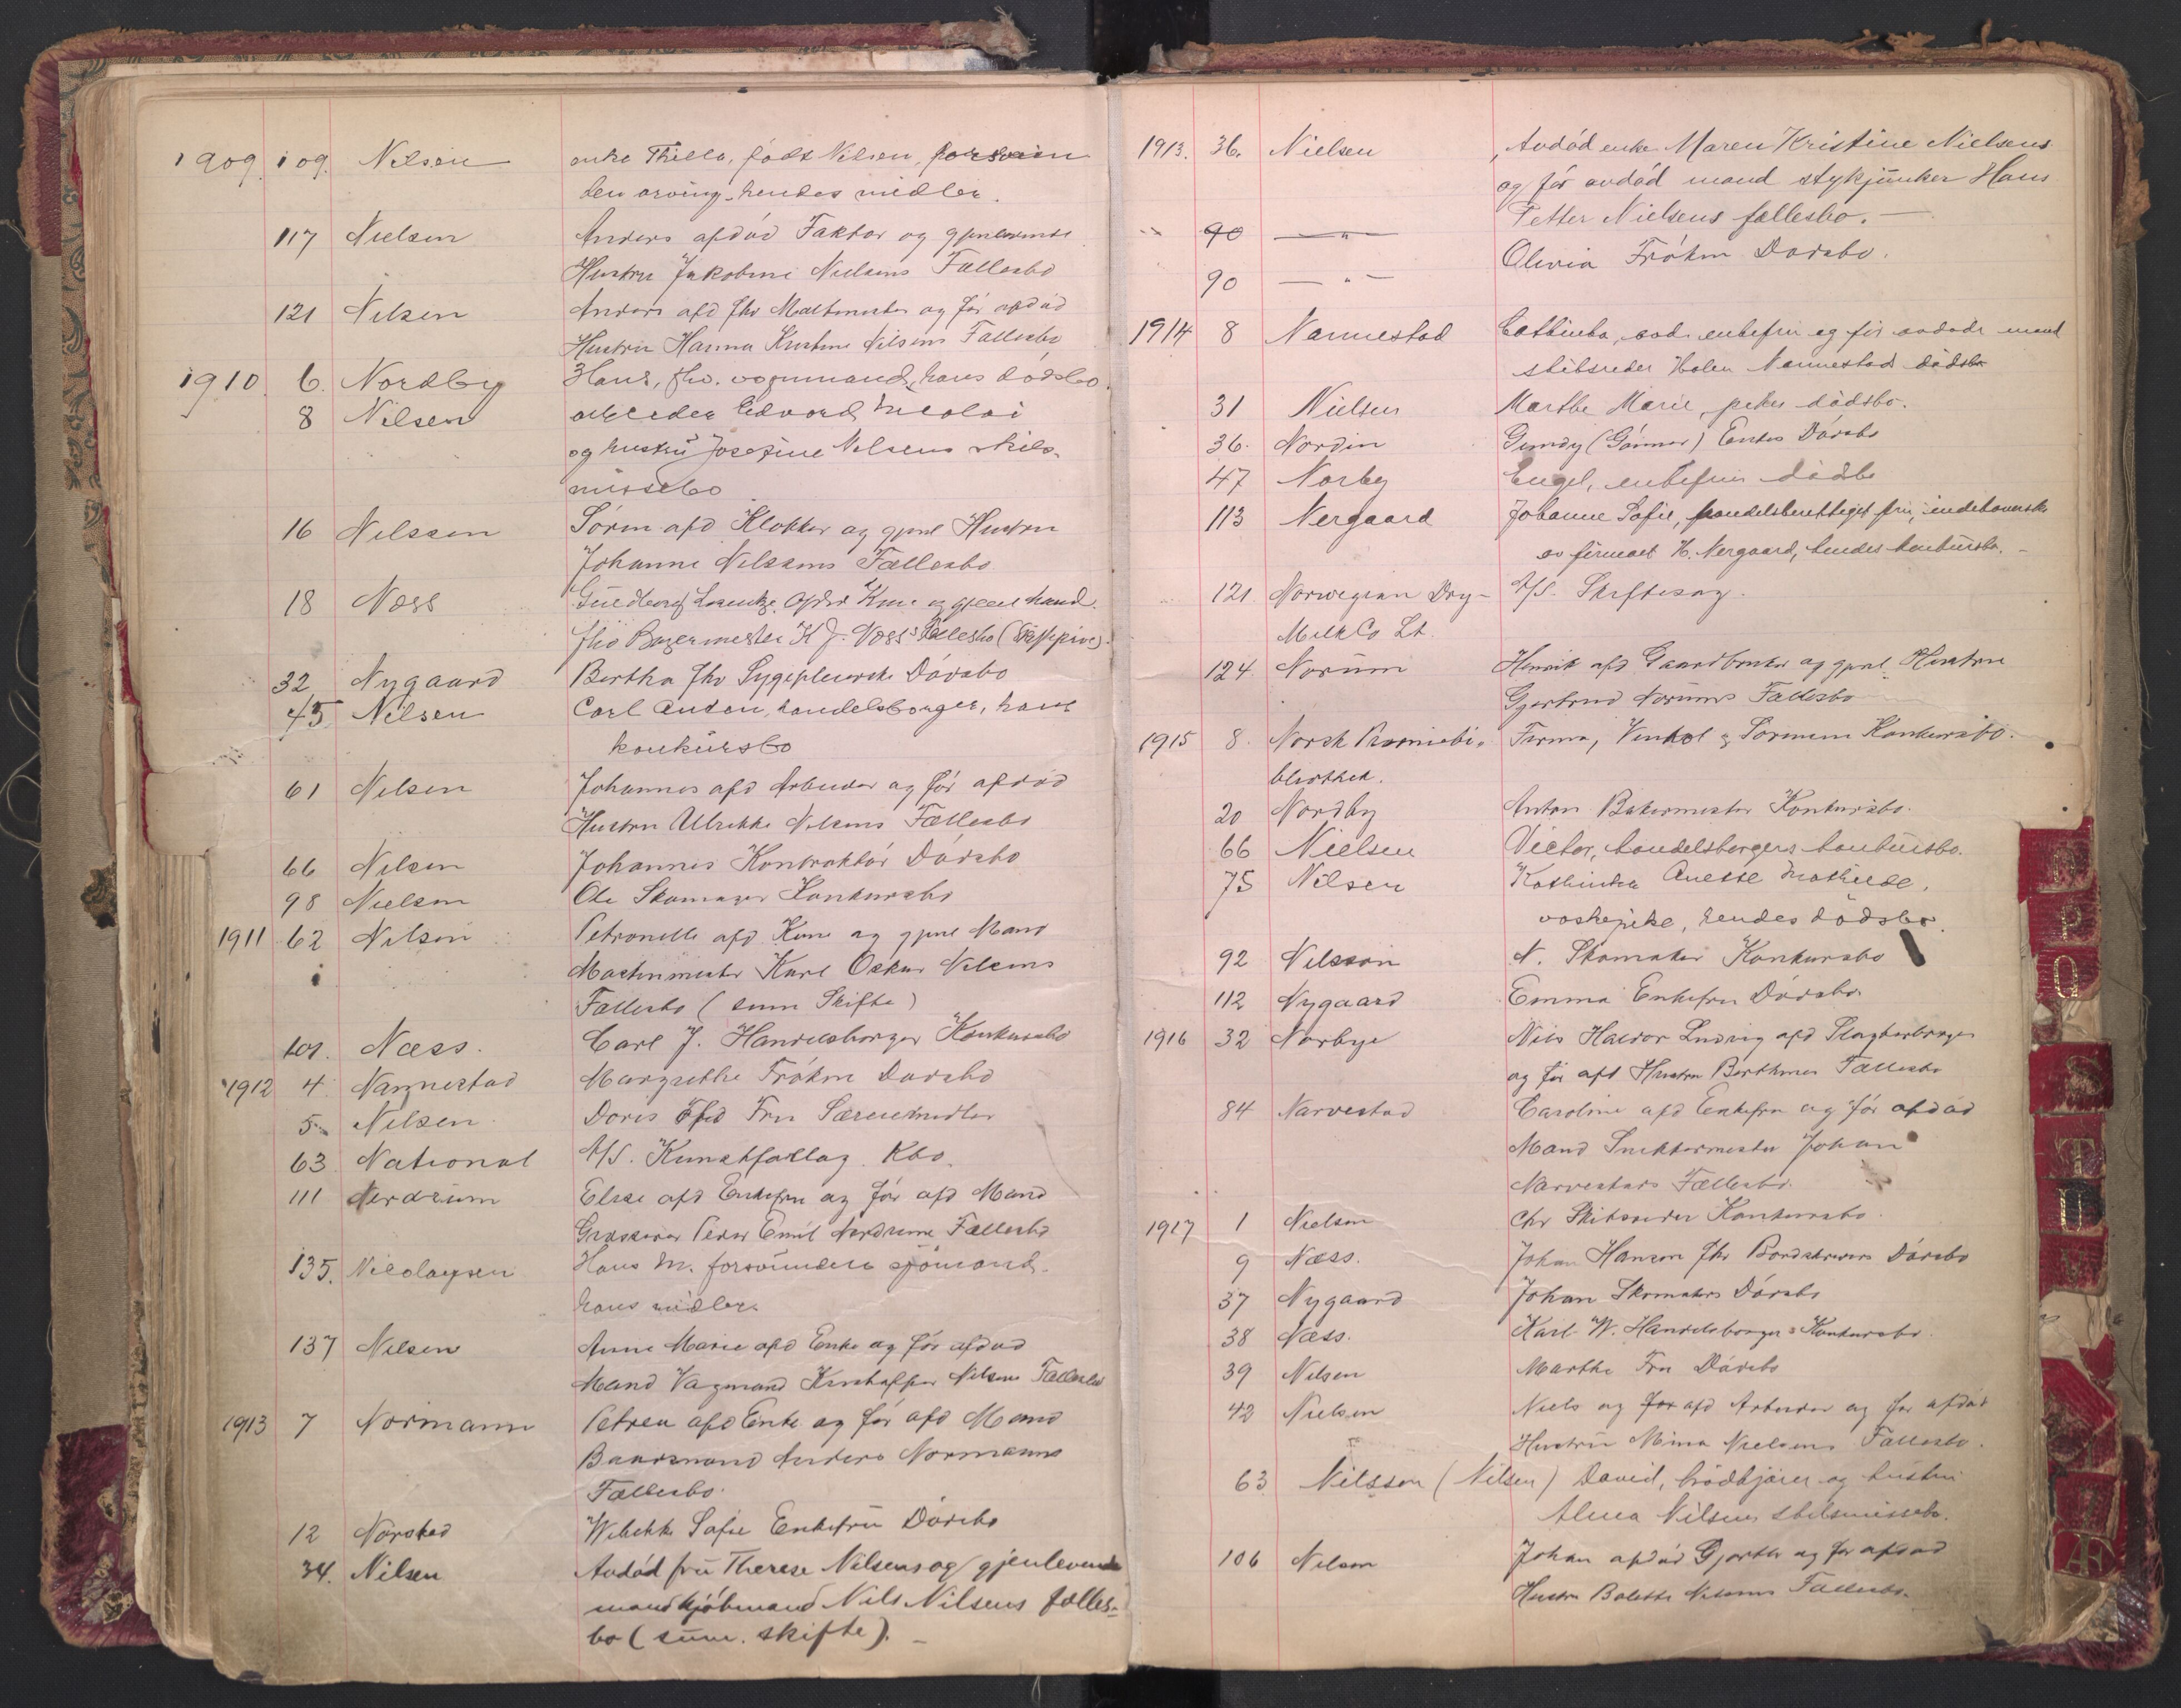 1909. 109. Nilsen enke Thilla, født Nilsen, forsvun
den arving, hendes midler.
117 Nielsen Anders afdød Faktor og gjenlevende
Hustru Jakobine Nielsens Fællesbo
121 Nilsen Anders afd fhv og før afdød
Hustru Hanna Kristine Nilsens Fællesbo
1910. 6. Nordby Hans, fhv. vognmand, hans dødsbo.
8 Nilsen arbeider Edvard Nicolai
og hustru Josefine Nilsens skils-
missebo
16 Nilssen Sören afd Klokker og gjenl Hustru
Johanne Nilssens Fællesbo
18 Næss Guldborg Lorentze afdød Kone og gjenl mand.
fhv Bagermester K J. Næss' Fællesbo
32 Nygaard Bertha fhv Sygepleierske Dödsbo
45 Nilsen Carl Anton, handelsborger, hans
konkursbo
61 Nilsen Johannes afd Arbeider og för afdød
Hustru Ulrikke Nilsens Fællesbo
66 Nilsen Johannes Kontraktör Dödsbo
98 Nielsen Ole Skomager Konkursbo
1911 62 Nilsen Petronelle afd Kone og gjenl Mand
Maskinmester Karl Oskar Nilsens
Fællesbo (sum Skifte)
101. Næss. Carl J. Handelsborger Konkursbo
1912 4. Nannestad Margrethe Frøken Dødsbo
5 Nilsen Doris afd Fru Særeiemidler
63. National A/S. Kunstforlag. Kbo.
111 Nerdrum Elise afd Enkefru og för afd Mand
Grosserer Peder Emil Nerdrums Fællesbo
135. Nicolaysen Hans M. forsvunden sjömand.
hans midler.
137 Nilsen Anne Marie afd Enke og för afdød
Mand Vognmand Kristoffer Nilsens Fællesbo
1913 7 Normann Petrea afd Enke og för afd Mand
Baadsmand Anders Normanns
Fællesbo.
12 Norstad Wibekke Sofie Enkefru Dödsbo
34. Nilsen Avdöd fru Therese Nilsens og gjenlevende
mand kjöbmand Nils Nilsens fælles-
bo (sum. skifte). –
1913. 36. Nielsen Avdöd enke Maren Kristine Nielsens
og för avdöd mand stykjunker Hans
Petter Nielsens fællesbo. –
90 — " —
90 — " — Olivia Fröken Dødsbo.
1914 8 Nannestad Cathinka, avd. enkefru og för avdøde mand
skibsreder Nannestads dödsbo
31 Nielsen Marthe Marie, pikes dödsbo.
36. Nordin Gundy (Gunnar) Enkes Dödsbo
47 Norby Engel, enkefrus dödsbo
113 Nergaard Johanne Sofie, handelsberettiget fru, indehaverske
av firmaet H. Nergaard, hendes konkursbo. –
121. Norwegian Dry- A/S. Skiftesag.
Milk Co Lt.
124 Norum Henrik afd Gaardbruker og gjenl. Hustru
Gjertrud Norums Fællesbo
1915 8. Norsk Præmiebi- Firma, & Sörensen Konkursbo.
bliothek.
20 Nordby Anton Bakermester Konkursbo.
66 Nielsen Victor, handelsborgers konkursbo.
75 Nilsen Kathinka Anette Mathilde,
vaskepike, hendes dödsbo.
92 Nilsson N. Skomaker Konkursbo
112 Nygaard Emma Enkefru Dödsbo
1916 32 Norbye Nils Halvor Ludvig afd
og för afd Hustru Fællesbo
84 Narvestad Caroline afd Enkefru og för afdød
Mand Snekkermester Johan
Narvestads Fællesbo.
1917 1 Nielsen Chr Skibsreder Konkursbo.
9 Næss. Johan Hansen fhv Dödsbo
37 Nygaard Johan Skomakers Dödsbo
38 Næss. Karl W. Handelsborger Konkursbo.
39 Nilsen Marthe Fru Dödsbo
42 Nielsen Niels og for afd Arbeider og før afdød
Hustru Mina Nielsens Fællesbo.
63 Nilsson (Nilsen) David, brödkjörer og hustru
Alma Nilsens skilsmissebo.
106 Nilsen Johan afdöd Gjørtler og før afdød
Hustru Bolette Nilsens Fællesbo.